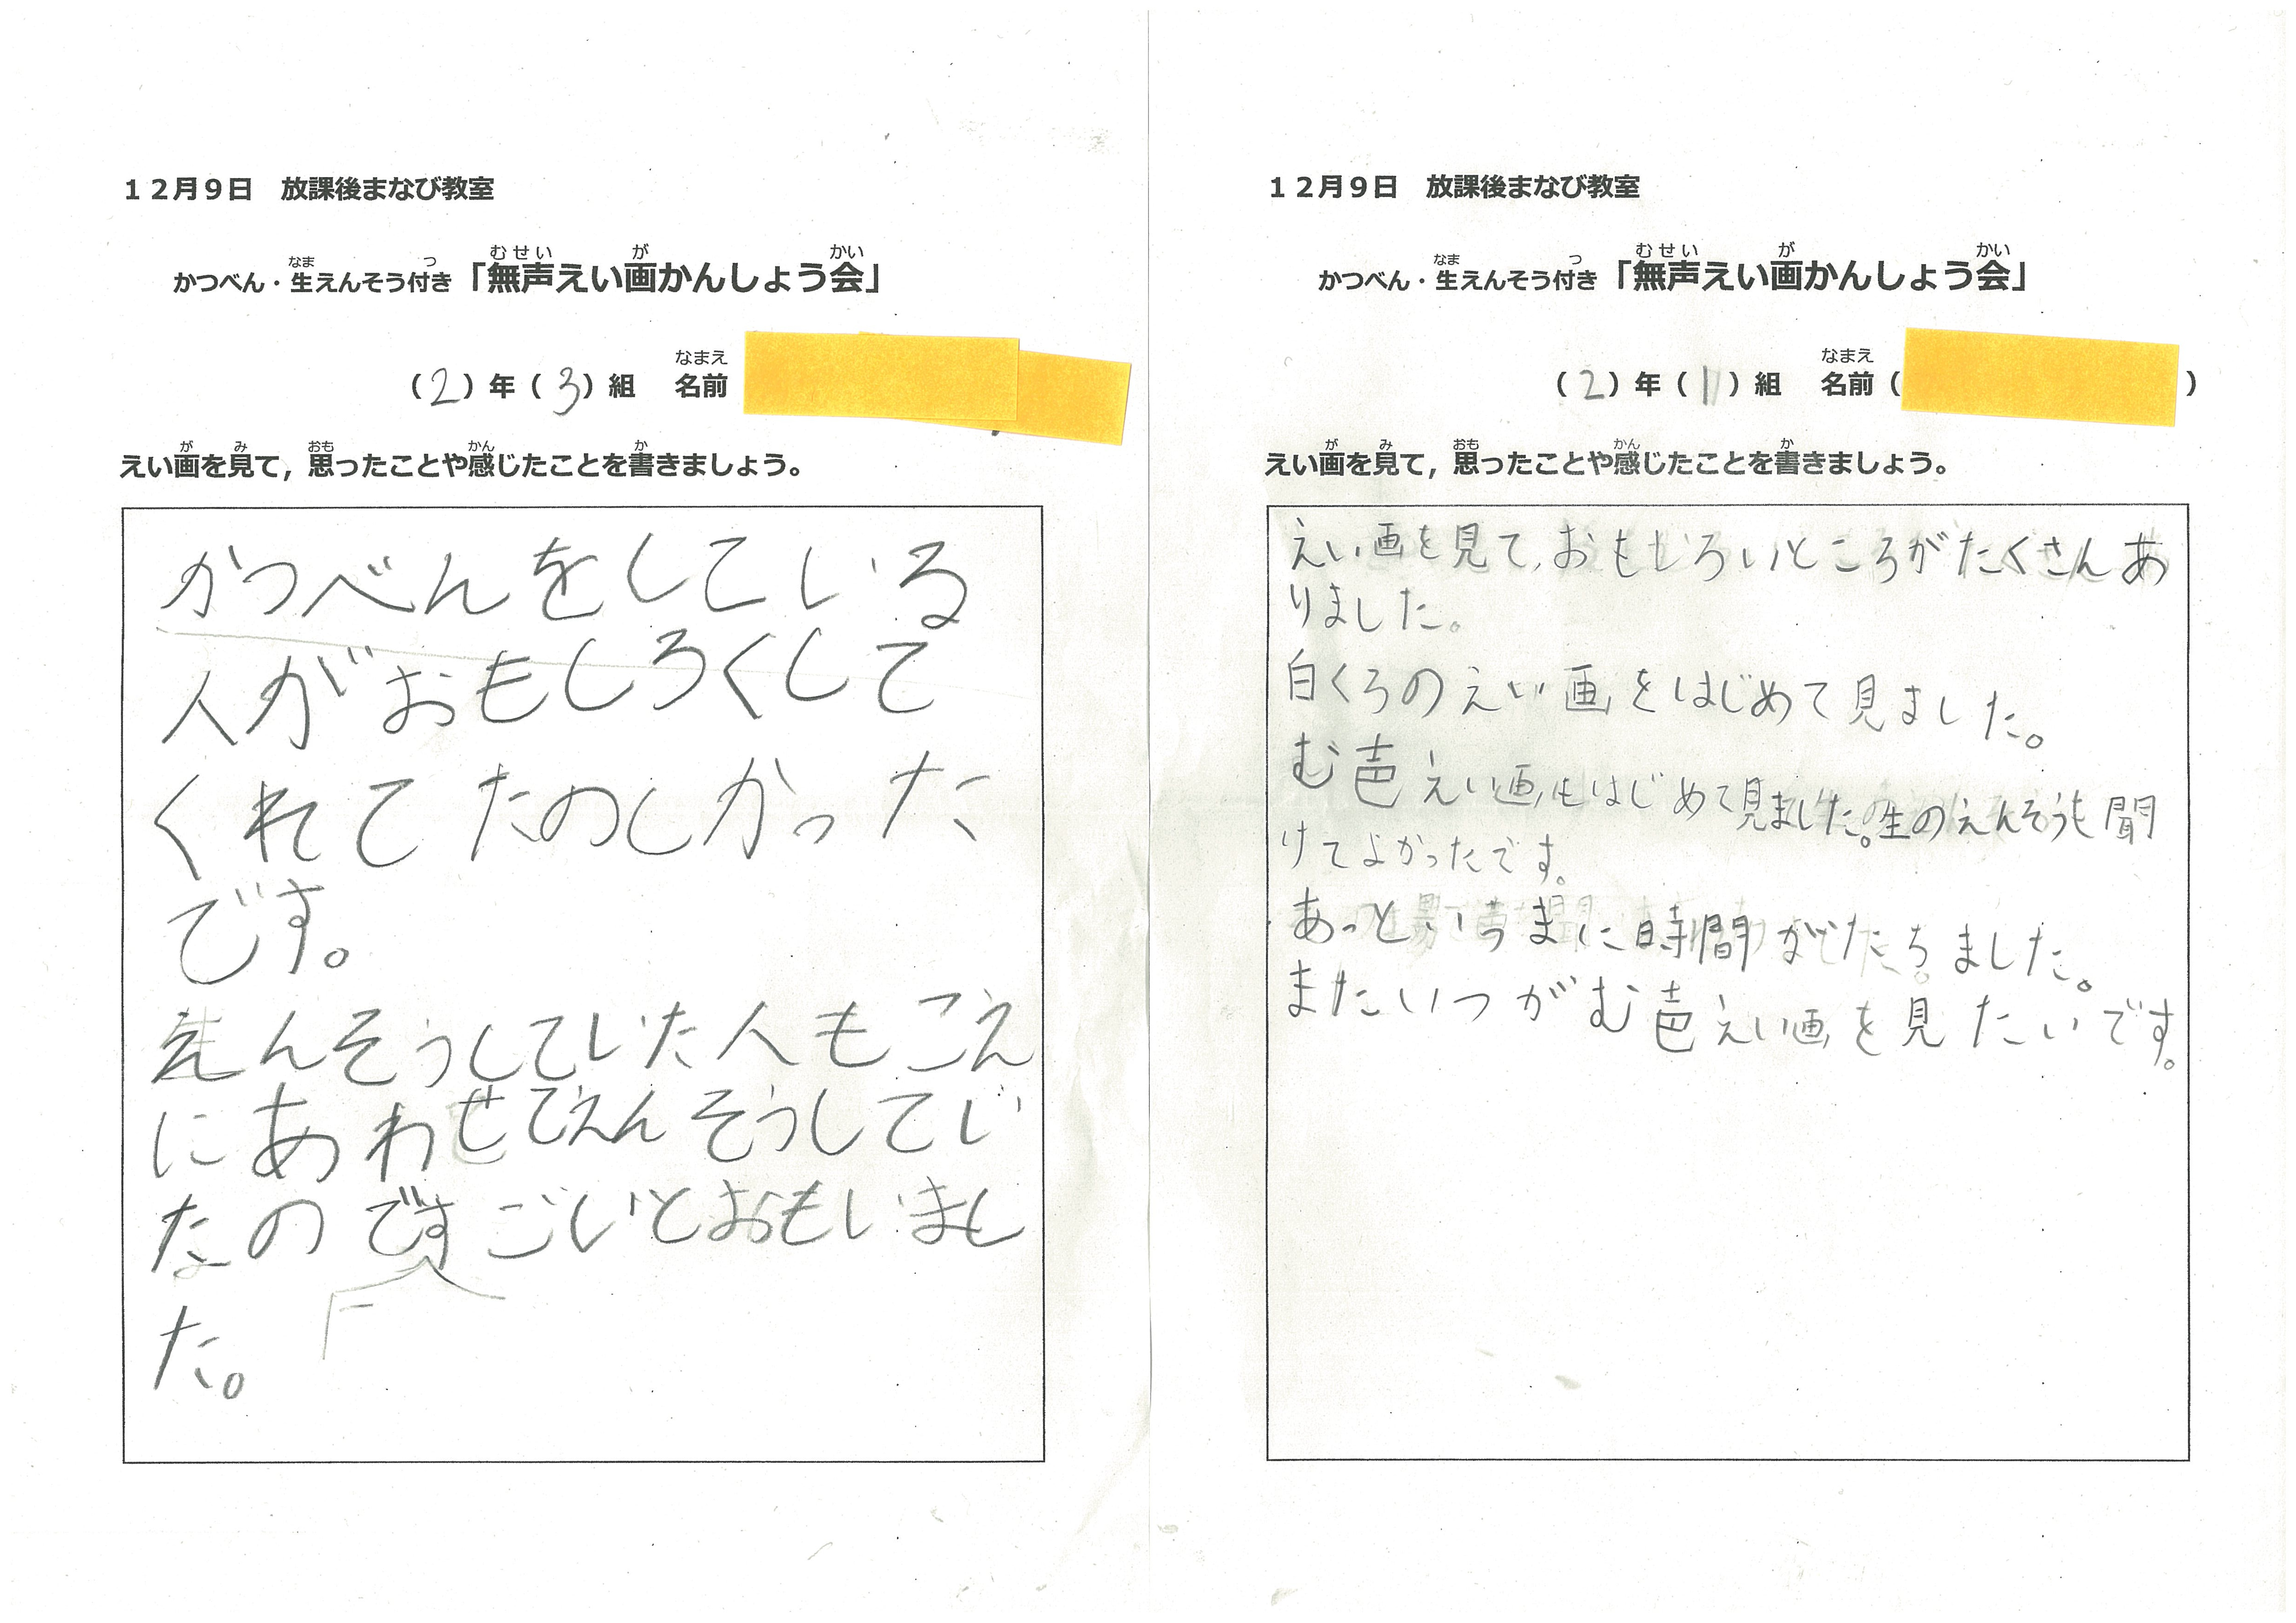 12月9日 放課後まなび教室
かつべん・生えんそう付き「無声えい画かんしょう会」
なま つ むせい が かい
(2)年(3)組 名前
なまえ
えい画を見て,思ったことや感じたことを書きましょう。
が み おも かん か
かつべんをしている
人がおもしろくして
くれてたのしかった
です。
えんそうしていた人もこえ
にあわせてえんそうしてい
たのですごいとおもいまし
た。
12月9日 放課後まなび教室
かつべん・生えんそう付き「無声えい画かんしょう会」
なま つ むせい が かい
(2)年(1)組 名前( )
なまえ
えい画を見て,思ったことや感じたことを書きましょう。
が み おも かん か
えい画を見て、おもしろいところがたくさんあ
りました。
白くろのえい画をはじめて見ました。
む声えい画もはじめて見ました。生のえんそうも聞
けてよかったです。
あっというまに時間がたちました。
またいつがむ声えい画を見たいです。